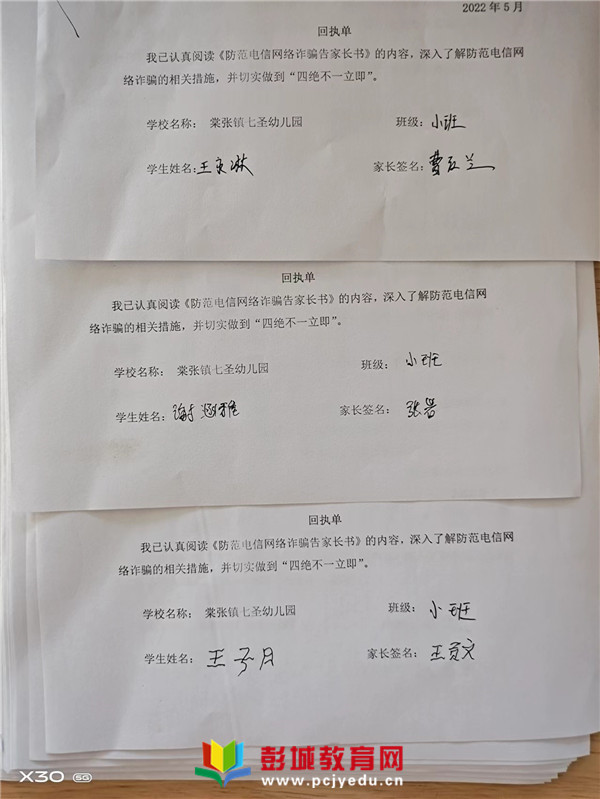 2022年5月
回执单
我已认真阅读《防范电信网络诈骗告家长书》的内容，深入了解防范电信网
络诈骗的相关措施，并切实做到“四绝不一立即”。
学校名称： 棠张镇七圣幼儿园 班级：小班
学生姓名：王 家长签名：
回执单
我已认真阅读《防范电信网络诈骗告家长书》的内容，深入了解防范电信网
络诈骗的相关措施，并切实做到“四绝不一立即”。
学校名称： 棠张镇七圣幼儿园 班级： 小班
学生姓名：谢涵雅 家长签名：
回执单
我已认真阅读《防范电信网络诈骗告家长书》的内容，深入了解防范电信网
络诈骗的相关措施，并切实做到“四绝不一立即”。
学校名称： 棠张镇七圣幼儿园 班级： 小班
学生姓名： 王子月 家长签名：
彭城教育网
www.pcjyedu.cn
X30 5G